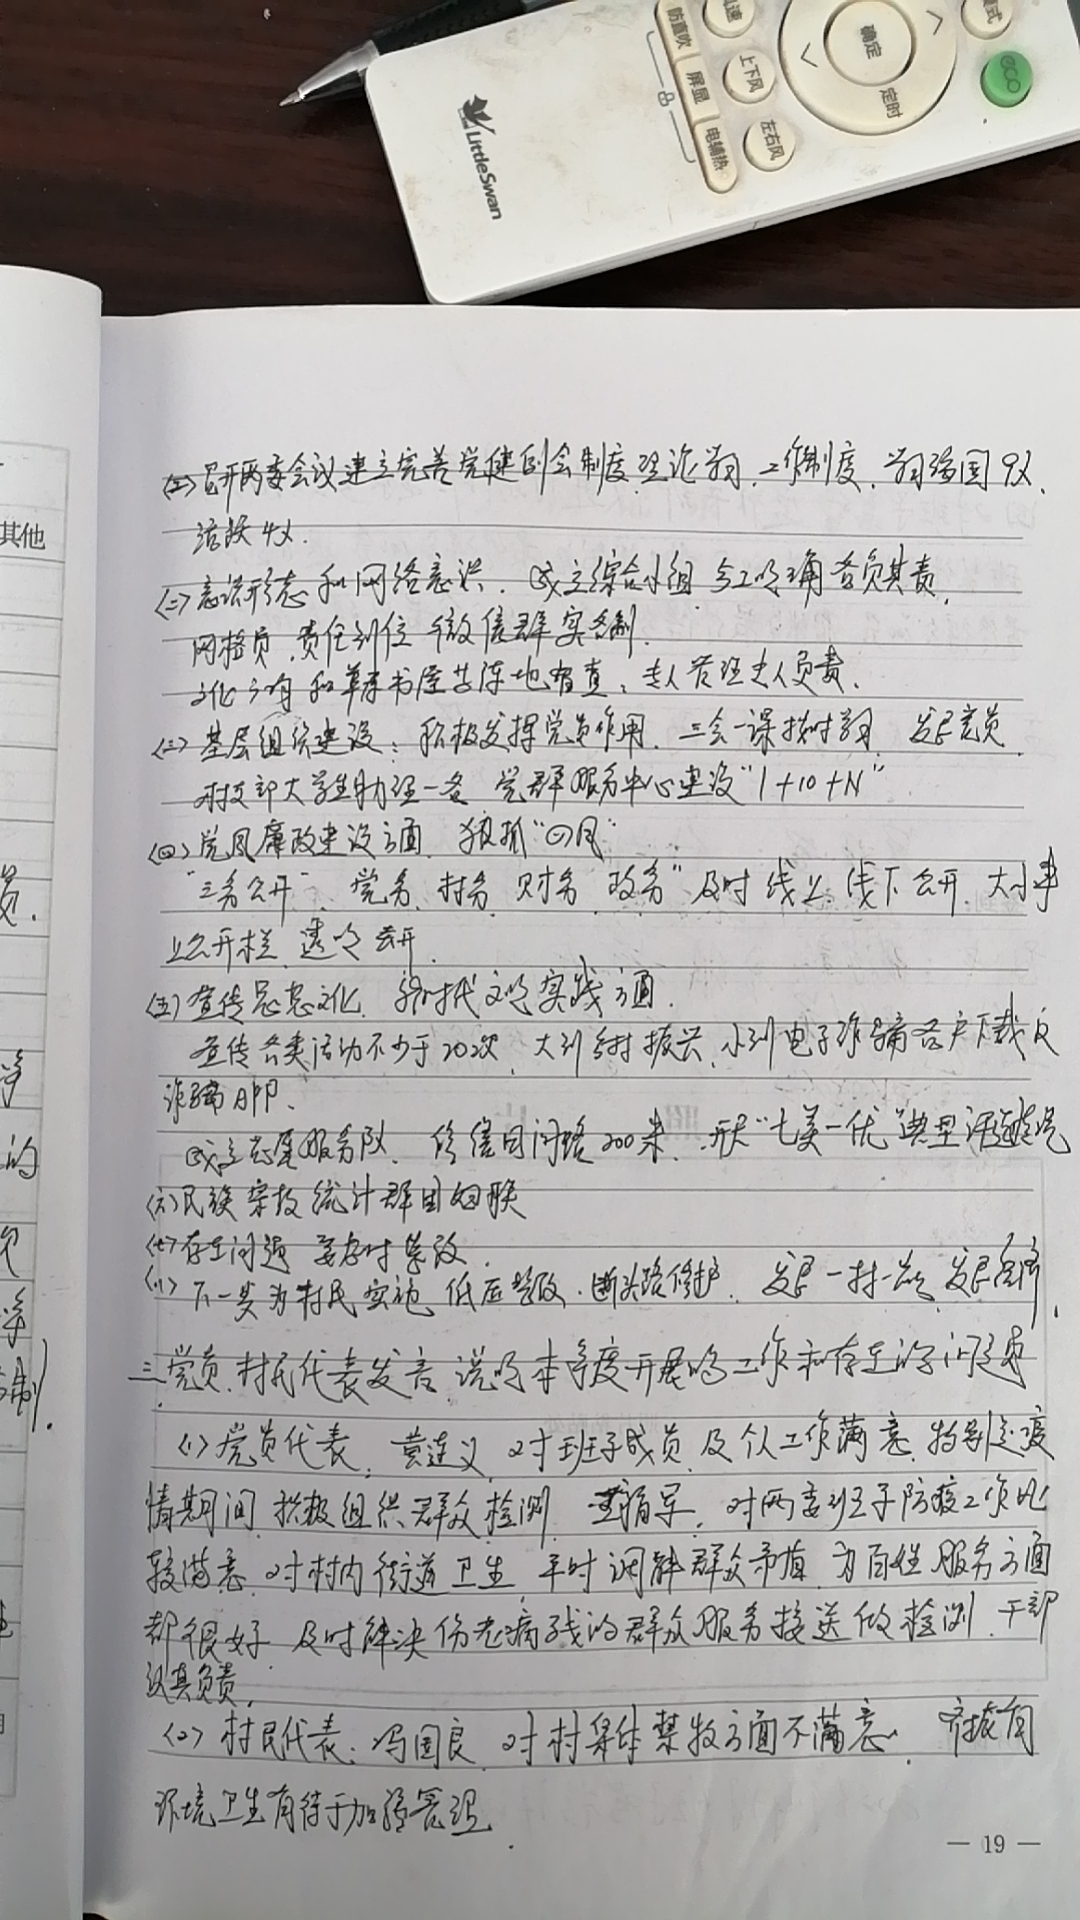 防直吹
屏显
电辅热
上下风
左右风
确定
定时
eco
LittleSwan
其他
召开两委会议建立完善党建例会制度,理论学习,工作制度,学习强国9次,
活跃4次.
(二)意识形态和网络意识,成立综合小组,分工明确各负其责,
网格员,责任到位,微信群实名制.
文化方面和草原书屋等阵地有查,专人管理专人负责.
(三)基层组织建设:积极发挥党员作用,三会一课按时学习,发展党员
村支部大学生助理一名 党群服务中心建设"1+10+N"
(四)党风廉政建设方面,狠抓"四风"
"三务公开",党务,村务,财务,政务"及时线上,线下公开,大小事
上公开栏,透明公开
(五)宣传思想文化,新时代文明实践方面.
宣传各类活动不少于20次,大到乡村振兴,小到电子诈骗各户下载反
诈骗APP.
成立志愿服务队,修缮田间路200米,开展"七美一优"典型评选
(六)民族宗教统计群团妇联
(七)存在问题 要及时整改
(八)下一步为村民实施,低压整改,断头路修护,发展一村一品,发展
三.党员,村民代表发言,说明本季度开展的工作和存在的问题
(1)党员代表,黄连义,对班子成员及个人工作满意,特别是疫
情期间,积极组织群众检测,指导,对两委班子防疫工作比
较满意,对村内街道卫生,平时调解群众矛盾,为百姓服务方面
都很好,及时解决伤老病残的群众服务接送做检测,干部
认真负责.
(2)村民代表:冯国良,对村集体禁牧方面不满意,
环境卫生有待于加强管理.
— 19 —